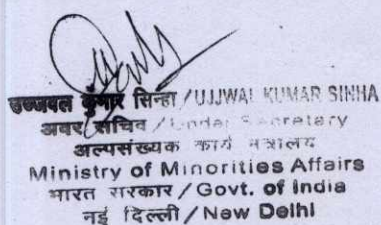 उज्जवल कुमार सिन्हा / UJJWAL KUMAR SINHA
अवर सचिव / Under Secretary
अल्पसंख्यक कार्य मंत्रालय
Ministry of Minorities Affairs
भारत सरकार / Govt. of India
नई दिल्ली / New Delhi